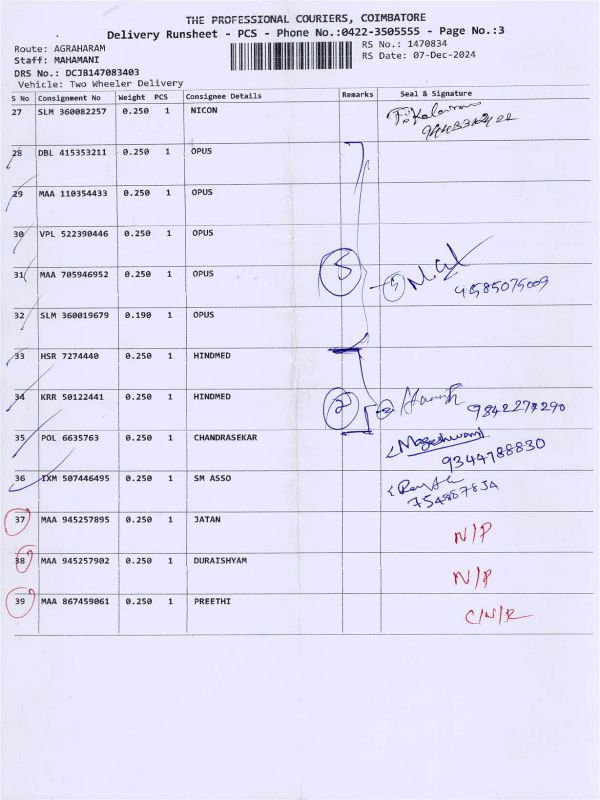 THE PROFESSIONAL COURIERS, COIMBATORE
Delivery Runsheet - PCS - Phone No.:0422-3505555 - Page No.:3
Route: AGRAHARAM RS No.: 1470834
Staff: MAHAMANI RS Date: 07-Dec-2024
DRS No.: DCJB147083403
Vehicle: Two Wheeler Delivery
S No Consignment No Weight PCS Consignee Details Remarks Seal & Signature
27 SLM 360082257 0.250 1 NICON
28 DBL 415353211 0.250 1 OPUS
29 MAA 110354433 0.250 1 OPUS
30 VPL 522390446 0.250 1 OPUS
31 MAA 705946952 0.250 1 OPUS 5
32 SLM 360019679 0.190 1 OPUS
33 HSR 7274440 0.250 1 HINDMED
34 KRR 50122441 0.250 1 HINDMED 2
35 POL 6635763 0.250 1 CHANDRASEKAR Mageshwari
9344788830
36 IXM 507446495 0.250 1 SM ASSO
37 MAA 945257895 0.250 1 JATAN N/P
38 MAA 945257902 0.250 1 DURAISHYAM N/P
39 MAA 867459061 0.250 1 PREETHI C/N/R